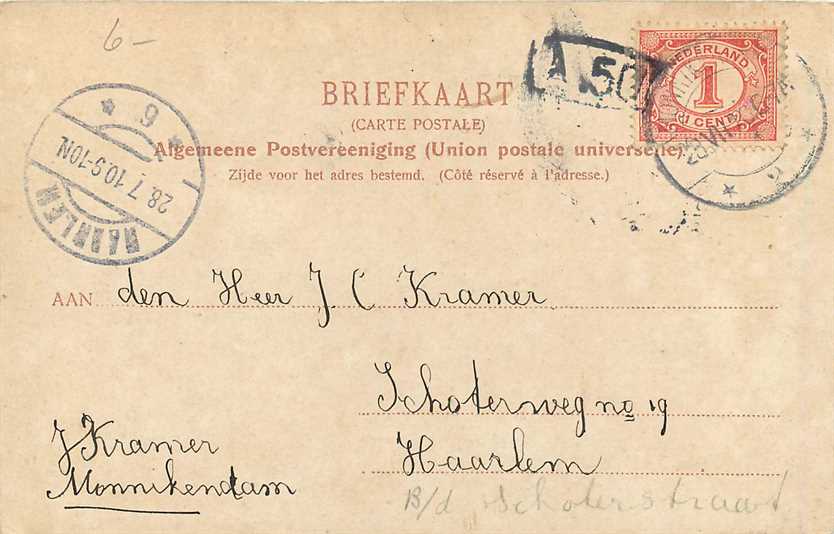 6-
A. 50
NEDERLAND
1
1 CENT
BRIEFKAART
(CARTE POSTALE)
Algemeene Postvereeniging (Union postale universelle)
Zijde voor het adres bestemd. (Côté réservé à l'adresse.)
6
28.7.10.9-10N.
HAARLEM
2
AAN den Heer J C Kramer
Schoterweg no 19
Haarlem
J Kramer
Monnikendam
B/d Schoterstraat